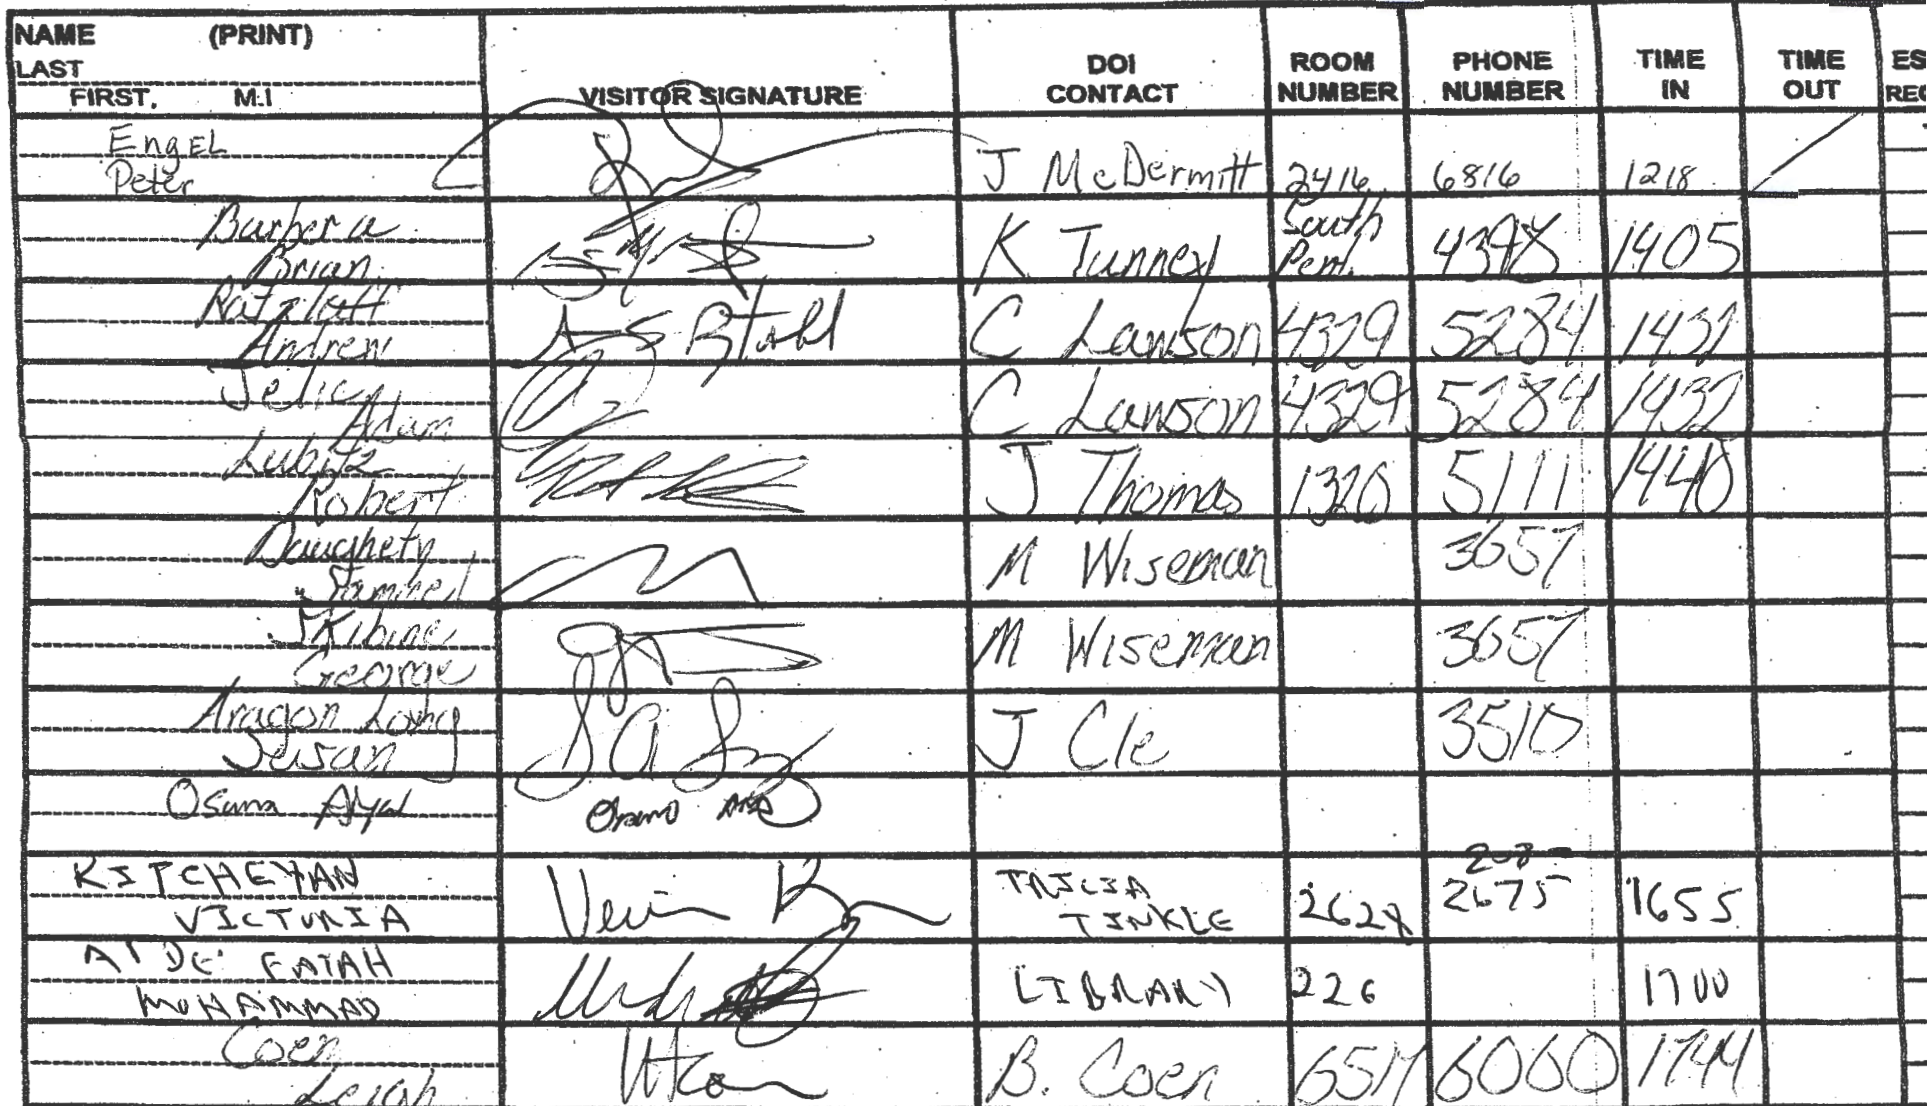 NAME (PRINT)
LAST
FIRST, M.I
VISITOR SIGNATURE
DOI CONTACT
ROOM NUMBER
PHONE NUMBER
TIME IN
TIME OUT
Engel
Peter
J McDermitt 2416 6816 1218
Barbera
Brian
K Tunney South Pent. 4398 1405
Ratzlaff
Andrew
C Lawson 4329 5284 1432
Jelic
Adam
C Lawson 4329 5284 1432
Lubitz
Robert
J Thomas 1320 5111 1440
Daughety
M Wiseman 3657
Skibine
George
M Wiseman 3657
Aragon Long
Susan
J Cle 3510
Osuna Ayal
KITCHEYAN
VICTORIA
TRICIA TINKLE 2628 2675 1655
FATAH
MOHAMMAD
LIBRARY 226 1700
Coen
Leigh
B. Coen 6517 6060 1744